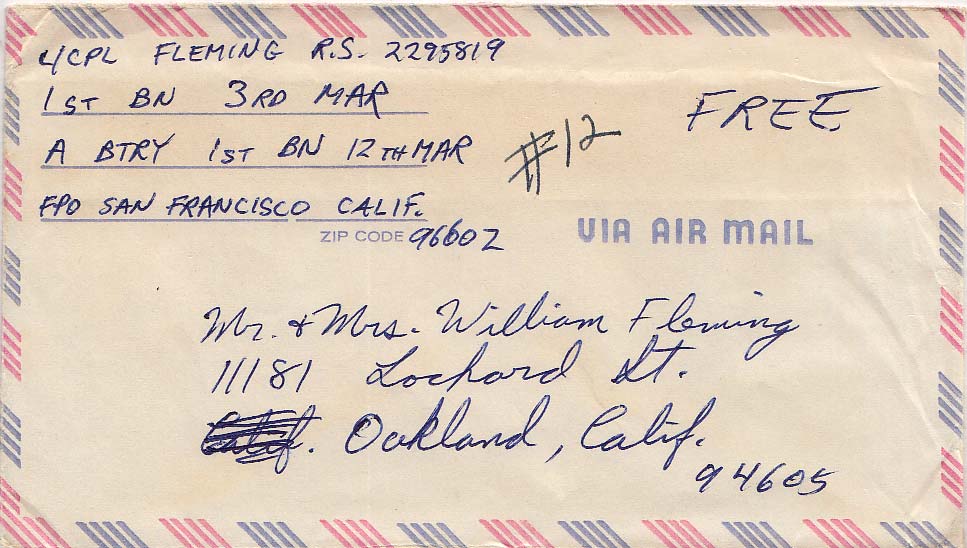 L/CPL FLEMING R.S. 2295819
1ST BN 3RD MAR
A BTRY 1ST BN 12TH MAR
FPO SAN FRANCISCO CALIF.
ZIP CODE 96602
FREE
#12
VIA AIR MAIL
Mr. & Mrs. William Fleming
11181 Lochard St.
Calif. Oakland, Calif.
94605